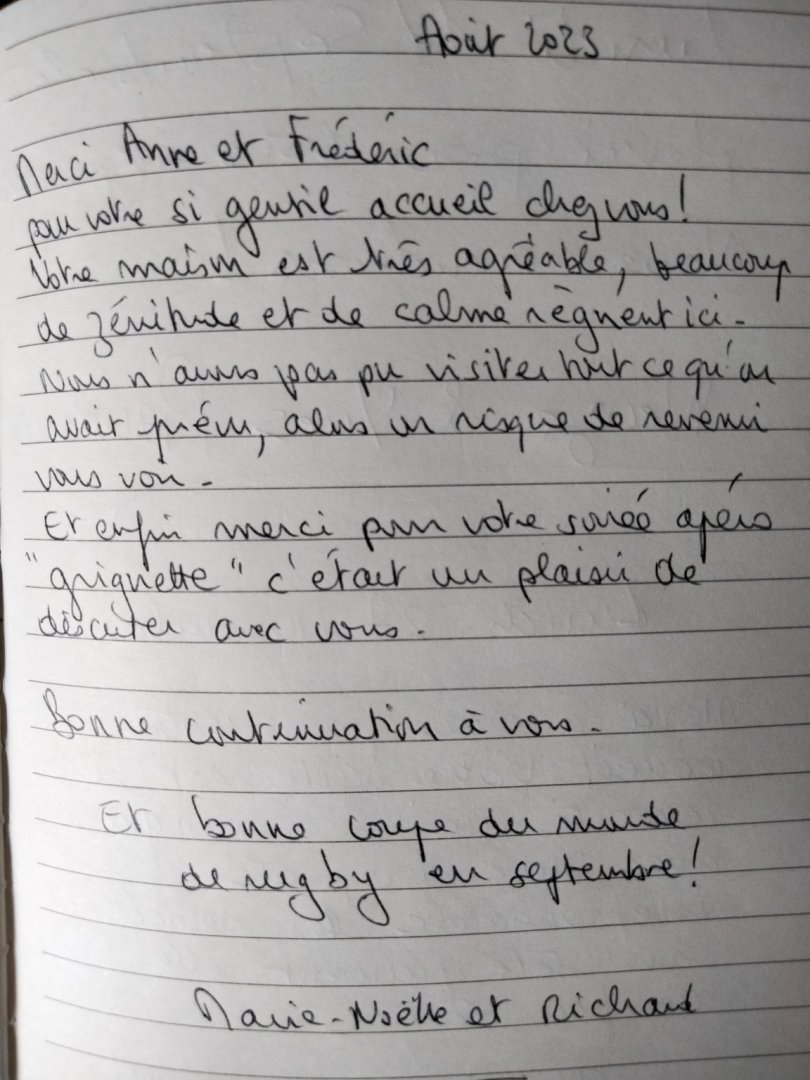 Août 2023
Merci Anne et Frédéric
pour votre si gentil accueil chez vous !
Votre maison est très agréable, beaucoup
de zénitude et de calme règnent ici.
Nous n'avons pas pu visiter tout ce qu'on
avait prévu, alors on risque de revenir
vous voir.
Et enfin merci pour votre soirée apéro
"grignette" c'était un plaisir de
discuter avec vous.
Bonne continuation à vous.
Et bonne coupe du monde
de rugby en septembre !
Marie-Noëlle et Richard